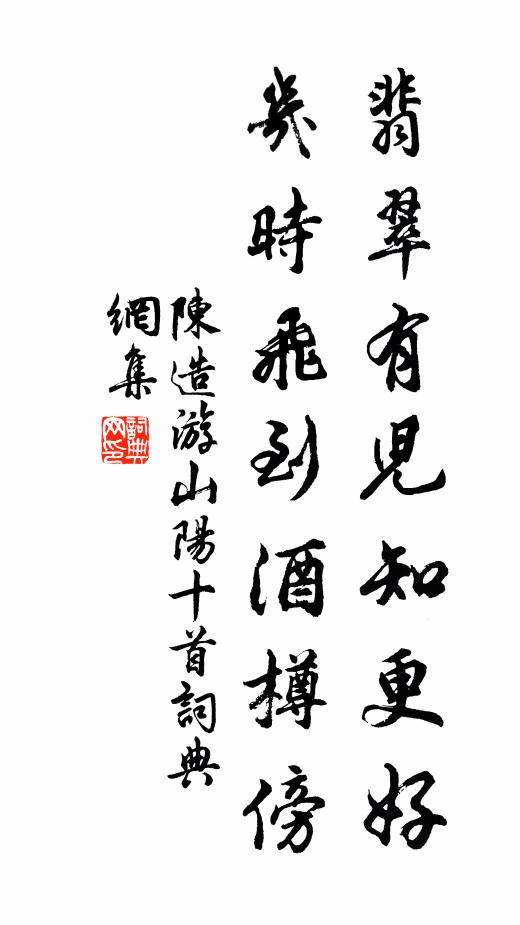 翡翠有児知更好
幾時飛到酒樽傍
陳造游山陽十首詞典
網集
詞典网印